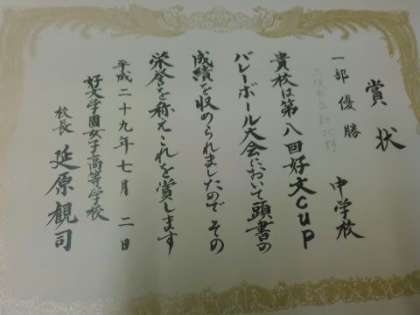 賞状
一部 優勝
中学校
貴校は第八回好文cup
バレーボール大会において頭書の
成績を収められましたのでその
栄誉を称えこれを賞します
平成二十九年七月二日
好文学園女子高等学校
校長 延原観司